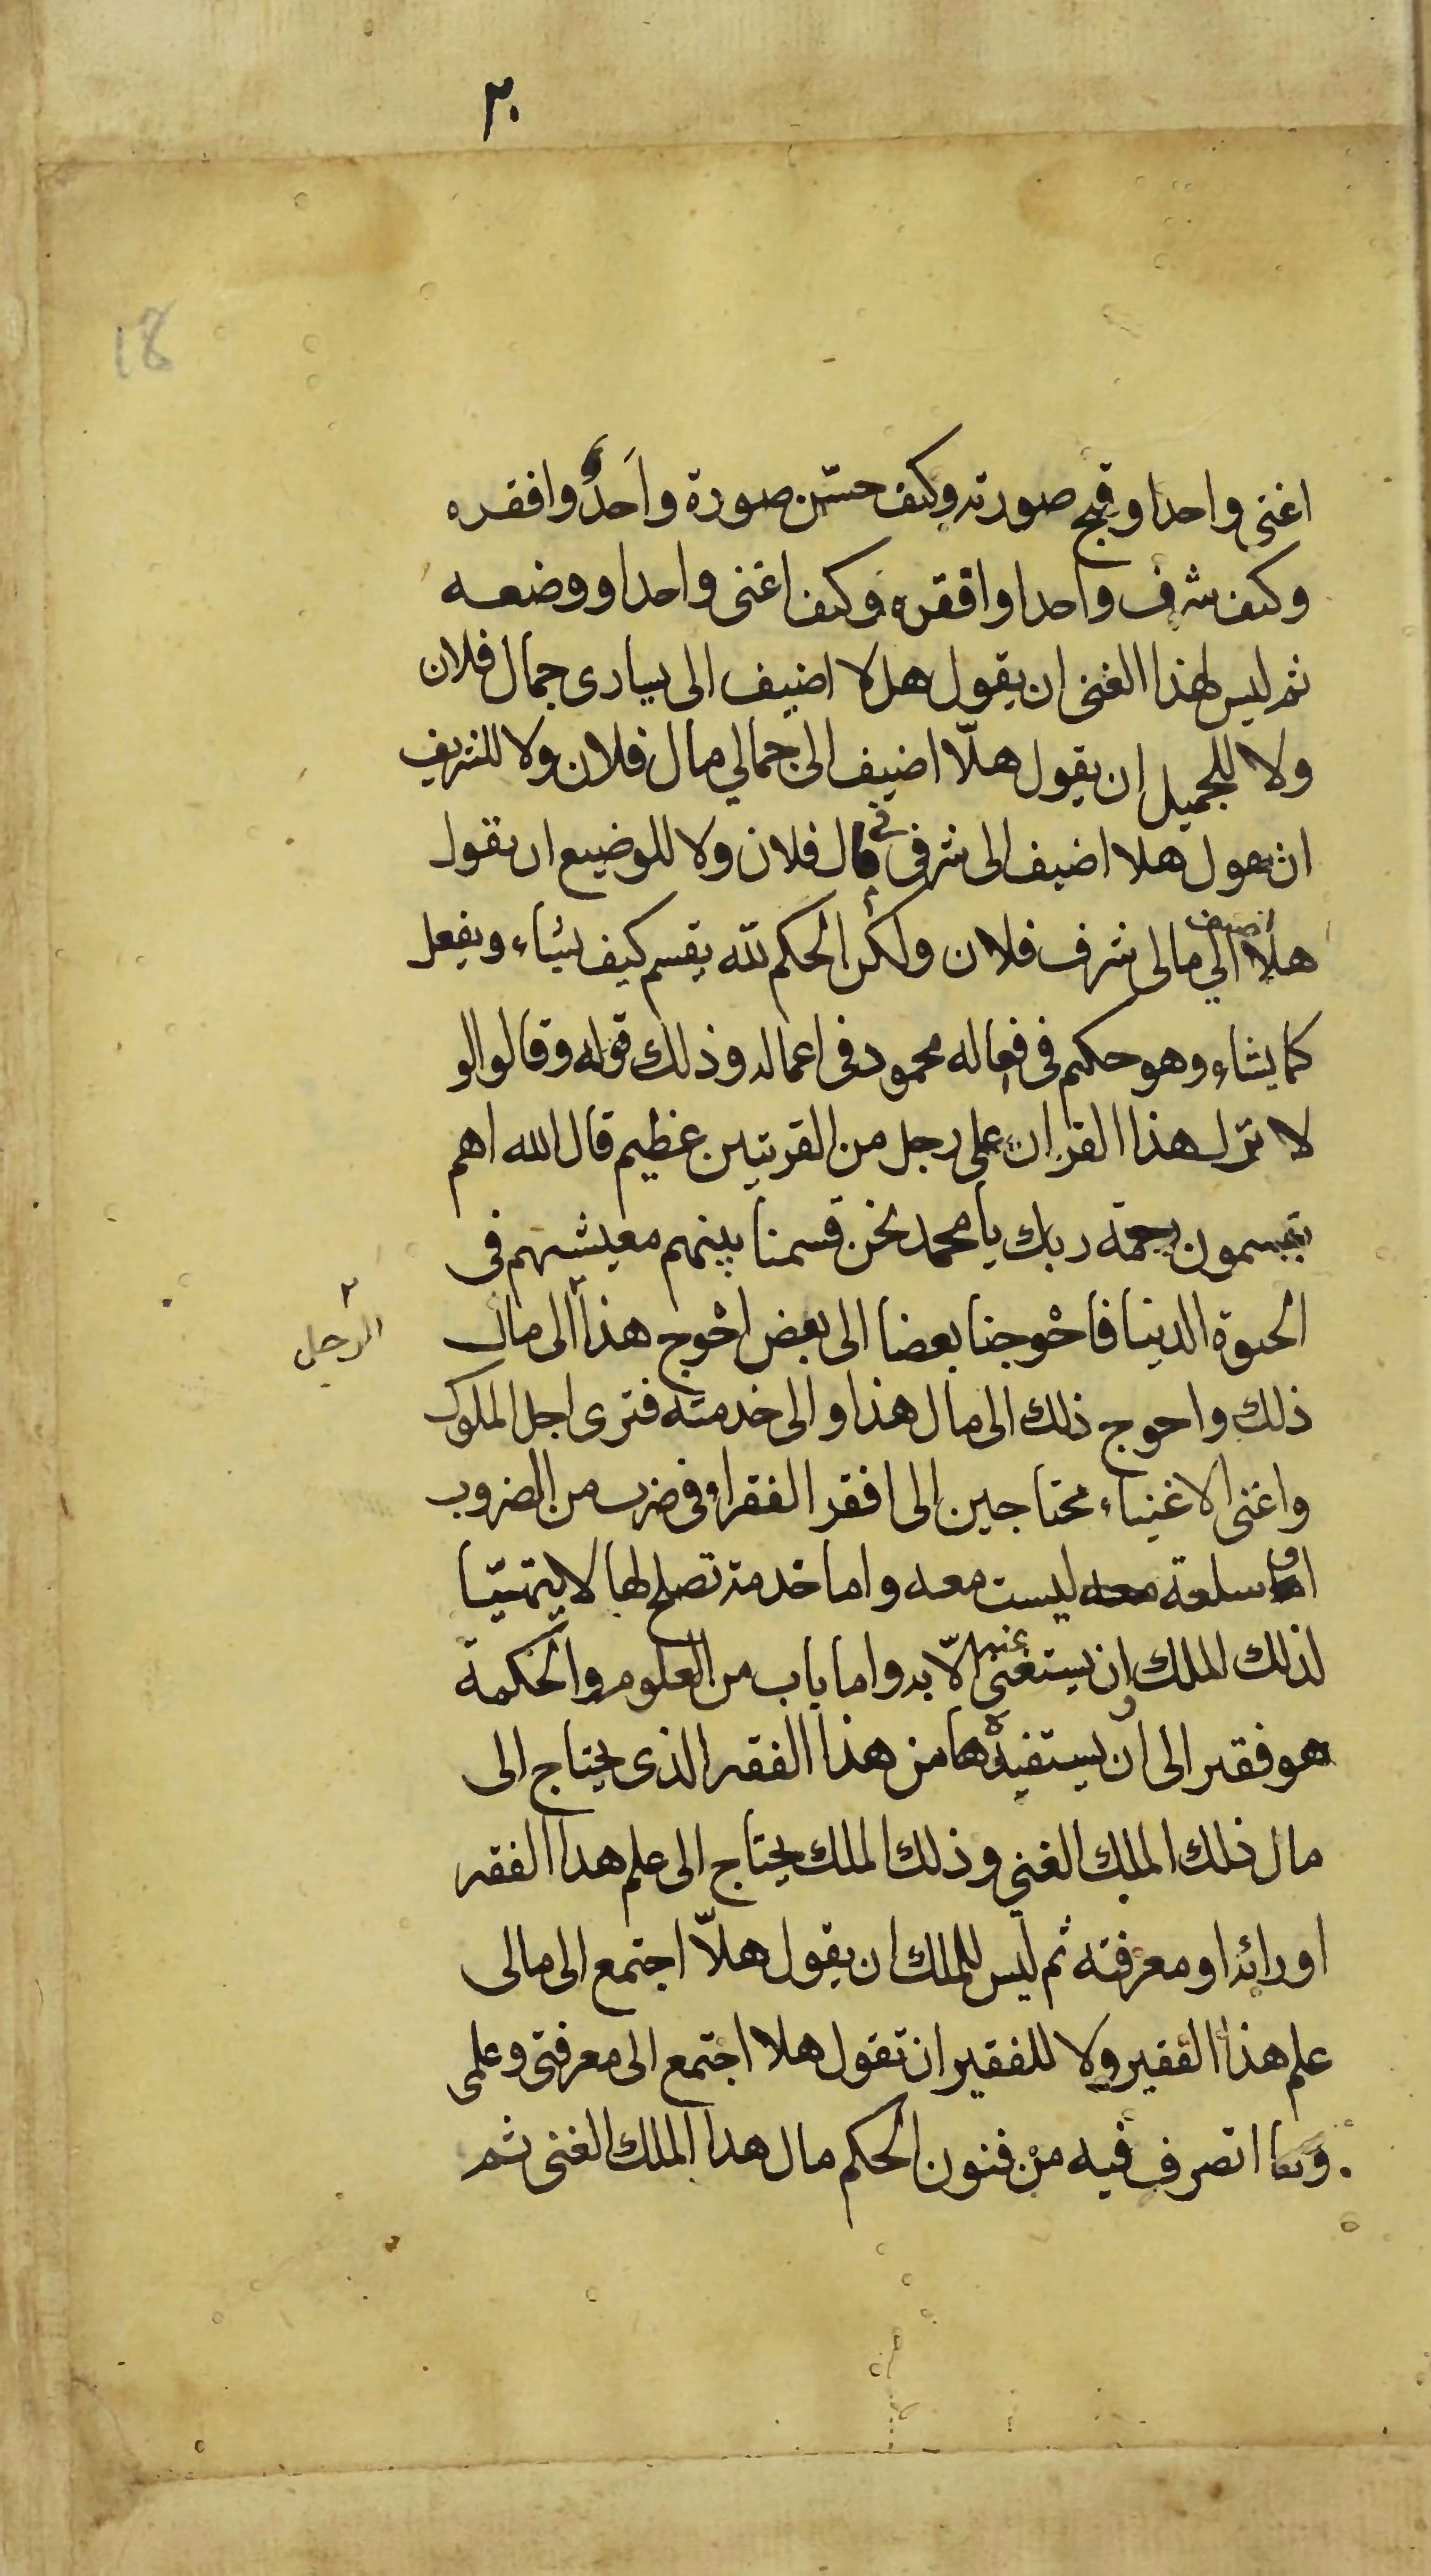 ٢٠
18
اغنى واحدا وقبح صورته وكيف حسّن صورة واحد وافقره
وكيف شرف واحدا وافقره وكيف اغنى واحدا ووضعه
ثم ليس لهذا الغنى ان يقول هلا اضيف الى يسارى جمال فلان
ولا للجميل ان يقول هلّا اضيف الى جمالي مال فلان ولا للشريف
ان يقول هلا اضيف الى شرفى مال فلان ولا للوضيع ان يقول
هلا اضيف الي مالى شرف فلان ولكن الحكم لله يقسم كيف يشاء ويفعل
كما يشاء وهو حكيم فى افعاله محمود فى اعماله وذلك قوله وقالوا لو
لا نزل هذا القران على رجل من القريتين عظيم قال الله اهم
يقسمون رحمة ربك يا محمد نحن قسمنا بينهم معيشتهم فى
الحيوة الدنيا فاحوجنا بعضا الى بعض احوج هذا الى مال
الرجل
ذلك واحوج ذلك الى مال هذا والى خدمته فترى اجل الملوك
واغنى الاغنياء محتاجين الى افقر الفقراء فى ضرب من الضروب
اما سلعة معه ليست معه واما خدمة تصلح لها لا يتهيّا
لذلك الملك ان يستغنى الّا به واما باب من العلوم والحكمة
هو فقير الى ان يستفيدها من هذا الفقير الذى يحتاج الى
مال ذلك الملك الغني وذلك الملك يحتاج الى علم هذا الفقير
او رائه او معرفته ثم ليس للملك ان يقول هلّا اجتمع الى مالى
علم هذا الفقير ولا للفقير ان تقول هلا اجتمع الى معرفتى وعلمى
وما اتصرف فيه من فنون الحكم مال هذا الملك الغنى ثم